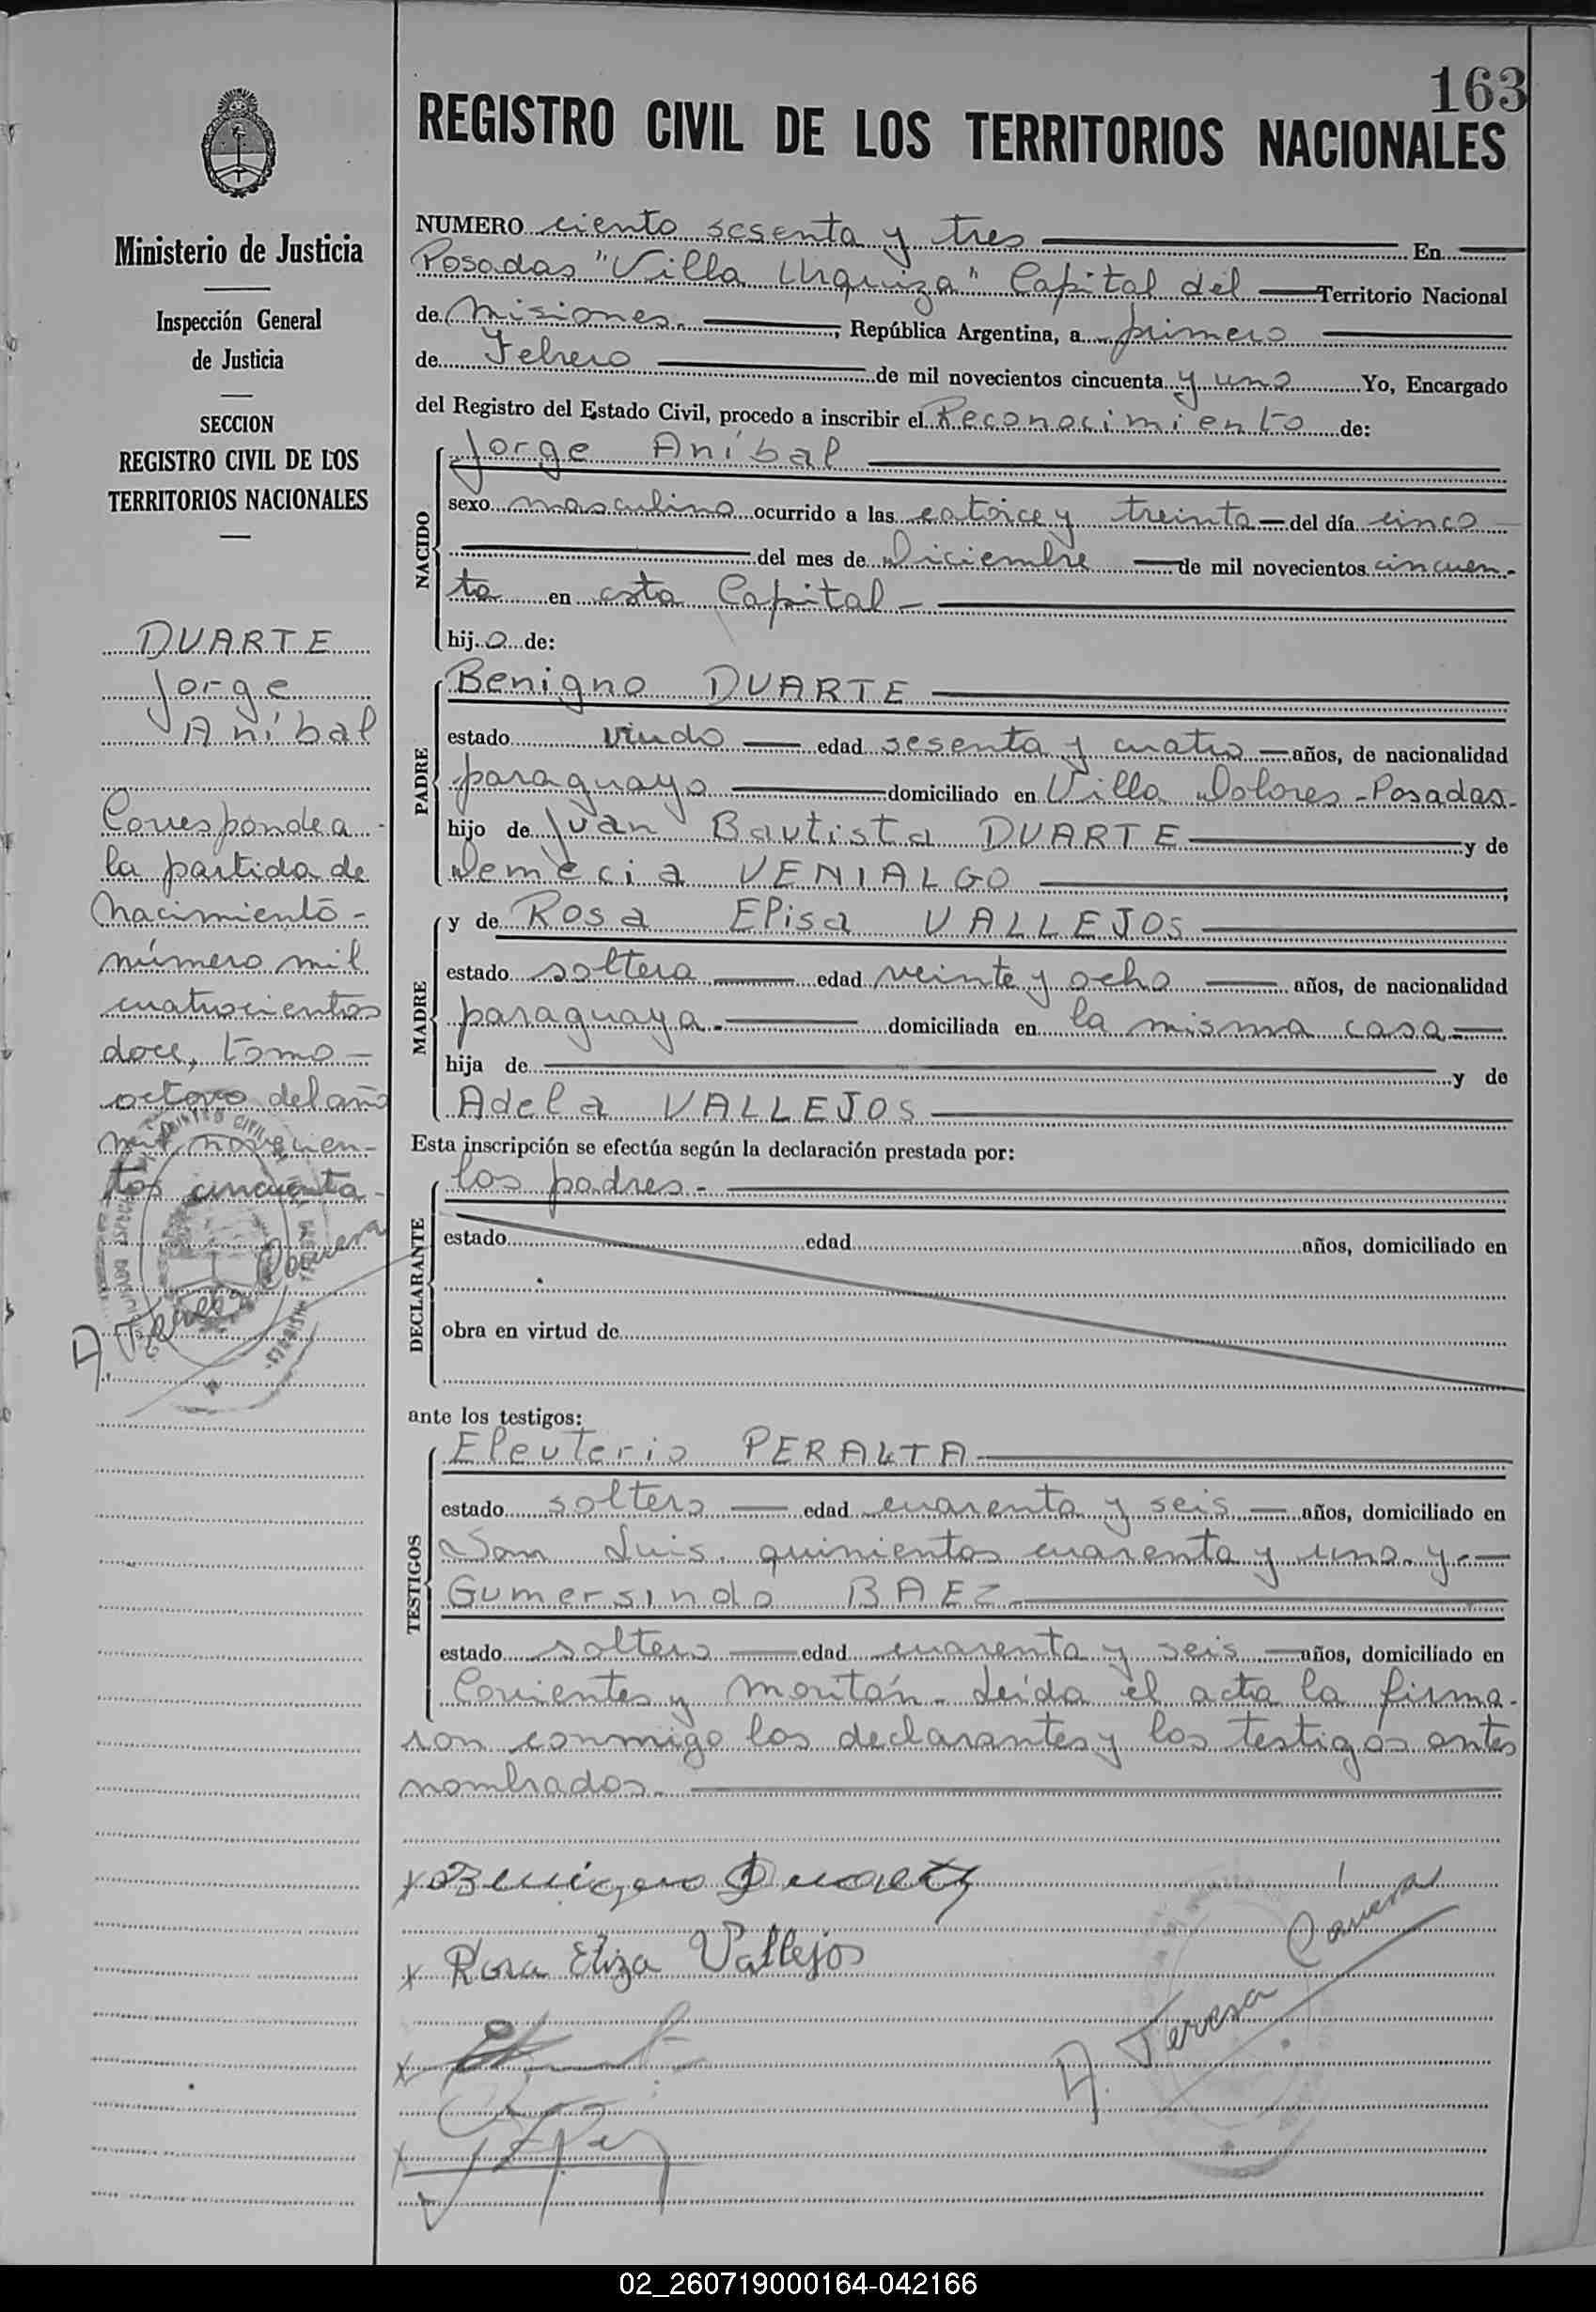 163
REGISTRO CIVIL DE LOS TERRITORIOS NACIONALES
Ministerio de Justicia
Inspección General
de Justicia
SECCION
REGISTRO CIVIL DE LOS
TERRITORIOS NACIONALES
DUARTE
Jorge
Aníbal
Corresponde a
la partida de
Nacimiento-
número mil
cuatrocientos
doce, tomo-
octavo del año
mil novecien-
tos cincuenta-
A. Teresa
NUMERO ciento sesenta y tres En
Posadas "Villa Urquiza" Capital del Territorio Nacional
de Misiones.-, República Argentina, a primero
de Febrero de mil novecientos cincuenta y uno Yo, Encargado
del Registro del Estado Civil, procedo a inscribir el Reconocimiento de:
NACIDO
Jorge Aníbal
sexo masculino ocurrido a las catorce y treinta del día cinco
del mes de Diciembre de mil novecientos cincuen-
ta en esta Capital-
hijo de:
PADRE
Benigno DUARTE
estado viudo edad sesenta y cuatro años, de nacionalidad
paraguayo domiciliado en Villa Dolores-Posadas-
hijo de Juan Bautista DUARTE y de
Demecia VENIALGO
MADRE
y de Rosa Elisa VALLEJOS
estado soltera edad veinte y ocho años, de nacionalidad
paraguaya.- domiciliada en la misma casa
hija de y de
Adela VALLEJOS
Esta inscripción se efectúa según la declaración prestada por:
DECLARANTE
los padres.-
estado edad años, domiciliado en
obra en virtud de
ante los testigos:
TESTIGOS
Eleuterio PERALTA
estado soltero edad cuarenta y seis años, domiciliado en
San Luis quinientos cuarenta y uno y.-
Gumersindo BAEZ
estado soltero edad cuarenta y seis años, domiciliado en
Corrientes y Leída el acta la firma-
ron conmigo los declarantes y los testigos antes
nombrados.-
x Benigno Duarte
x Rosa Eliza Vallejos
A. Teresa
02_260719000164-042166